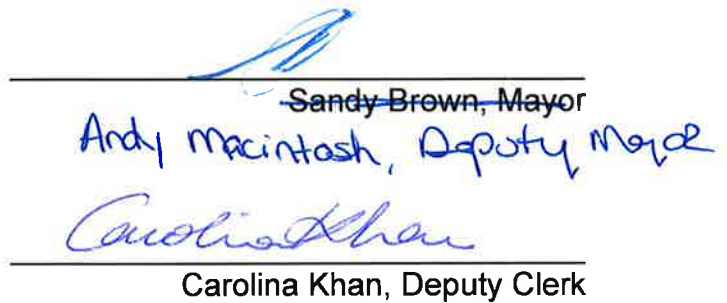 Sandy Brown, Mayor
Andy Macintosh, Deputy Mayor
Carolina Khan
Carolina Khan, Deputy Clerk